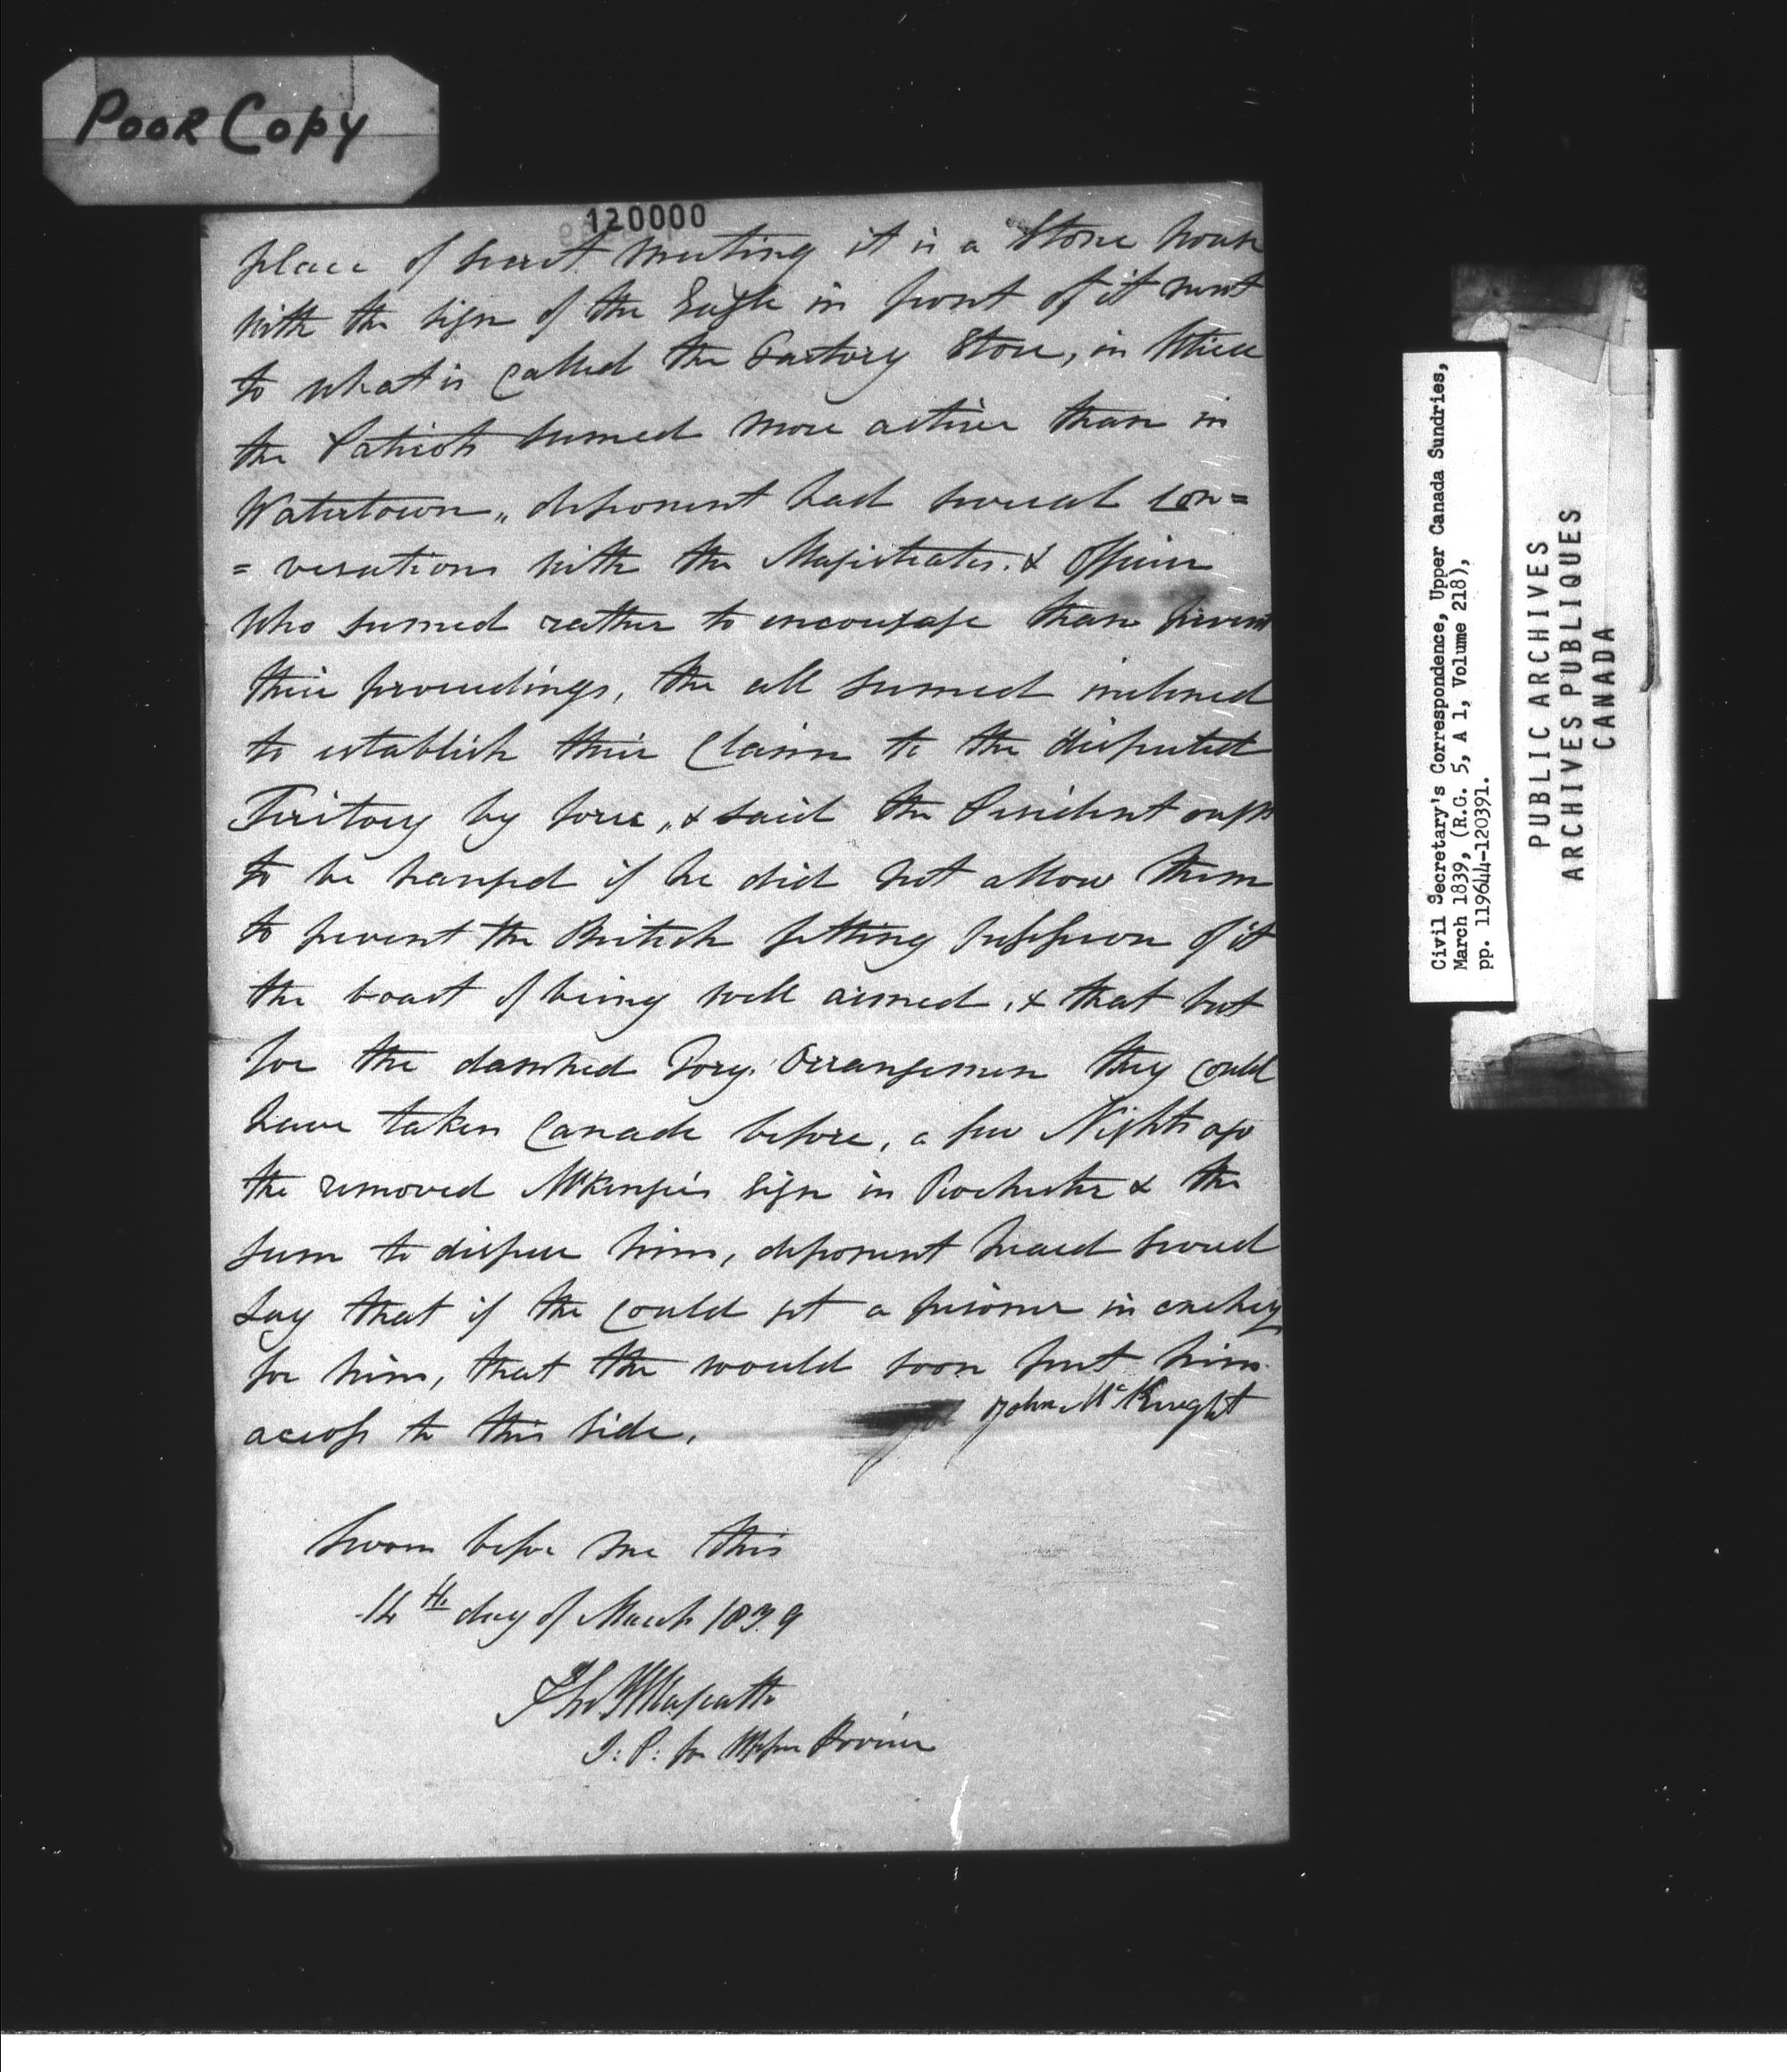 POOR COPY
120000
place of secret meeting it is a Stone house
with the sign of the Eagle in front of it next
to what is Called the Factory Store, in Utica
the Patriots seemed more active than in
Watertown,, deponent had several Con=
=versations with the Magistrates. & Officers
who seemed rather to encourage than prevent
their proceedings, the all seemed inclined
to establish their Claim to the disputed
Teritory by force,, & said the President ought
to be hanged if he did not allow them
to prevent the British getting possession of it
the boast of being well armed, & that but
for the damned Tory. Orrangemen they could
have taken Canada before, a few Nights ago
the removed McKenzie's sign in Rochester & the
seem to dispise him, deponent heard several
say that if the could get a prisoner in
for him, that the would soon put him
across to this side.
John McKnight
Sworn before me this
14th day of March 1839
J: P: for Upper Province
Civil Secretary's Correspondence, Upper Canada Sundries,
March 1839, (R.G. 5, A 1, Volume 218),
pp. 119644-120391.
PUBLIC ARCHIVES
ARCHIVES PUBLIQUES
CANADA